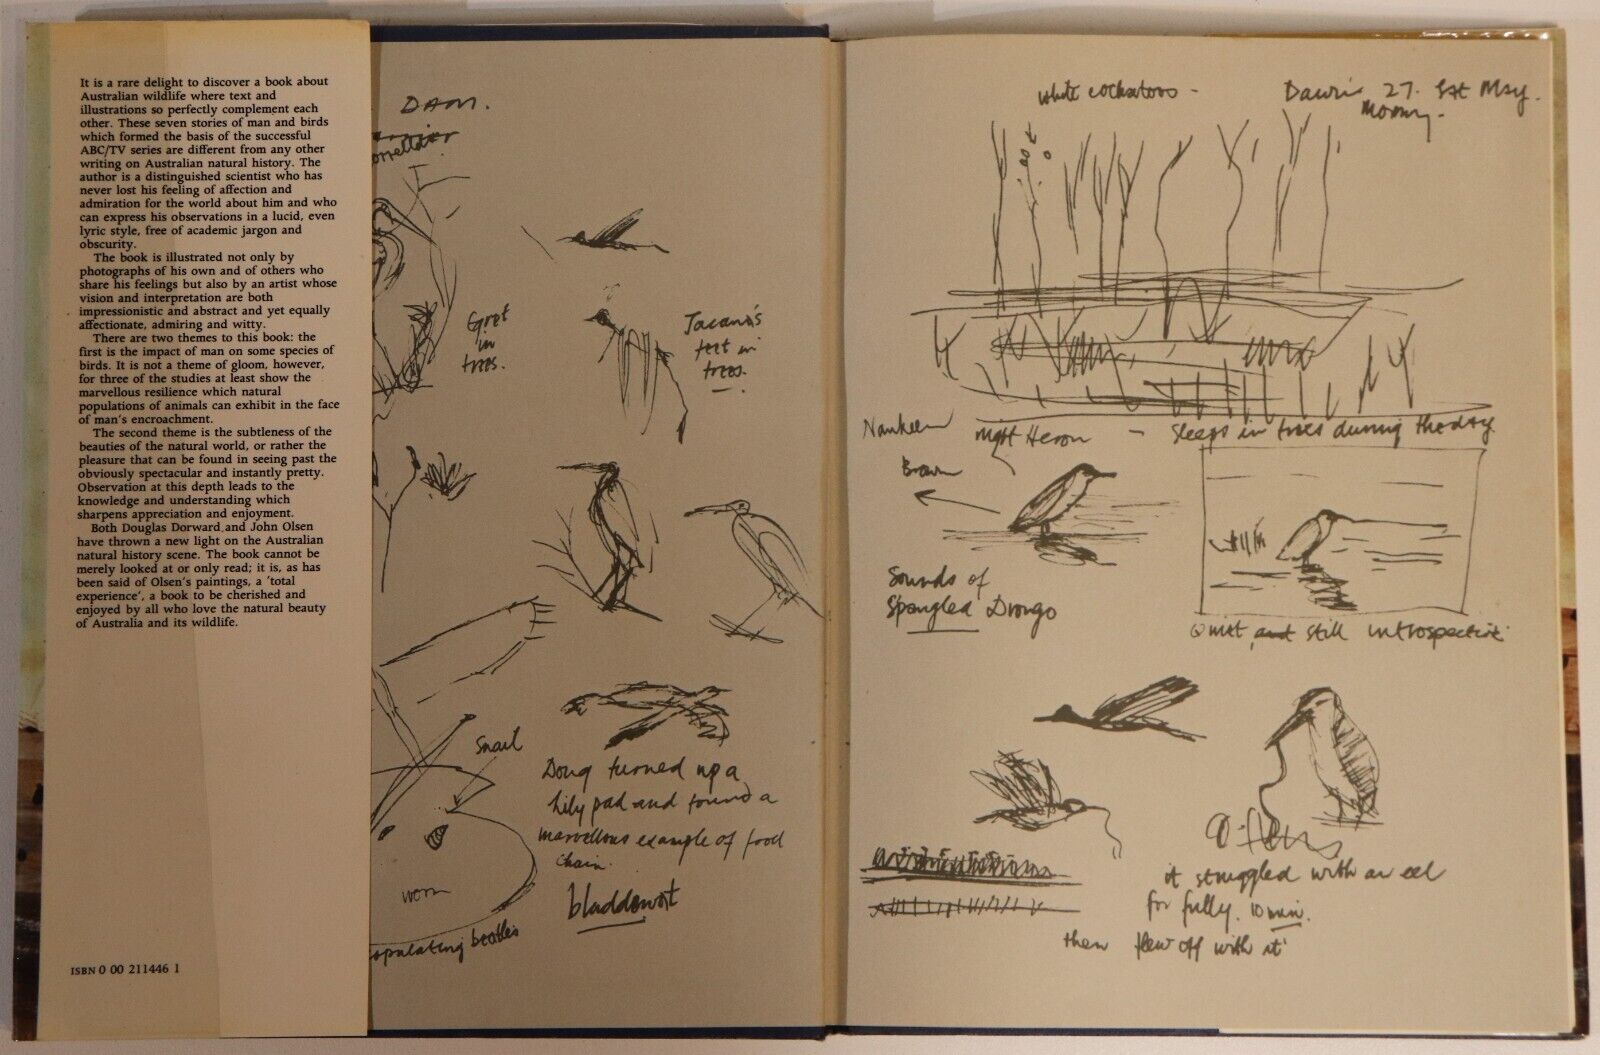 It is a rare delight to discover a book about
Australian wildlife where text and
illustrations so perfectly complement each
other. These seven stories of man and birds
which formed the basis of the successful
ABC/TV series are different from any other
writing on Australian natural history. The
author is a distinguished scientist who has
never lost his feeling of affection and
admiration for the world about him and who
can express his observations in a lucid, even
lyric style, free of academic jargon and
obscurity.
The book is illustrated not only by
photographs of his own and of others who
share his feelings but also by an artist whose
vision and interpretation are both
impressionistic and abstract and yet equally
affectionate, admiring and witty.
There are two themes to this book: the
first is the impact of man on some species of
birds. It is not a theme of gloom, however,
for three of the studies at least show the
marvellous resilience which natural
populations of animals can exhibit in the face
of man's encroachment.
The second theme is the subtleness of the
beauties of the natural world, or rather the
pleasure that can be found in seeing past the
obviously spectacular and instantly pretty.
Observation at this depth leads to the
knowledge and understanding which
sharpens appreciation and enjoyment.
Both Douglas Dorward and John Olsen
have thrown a new light on the Australian
natural history scene. The book cannot be
merely looked at or only read; it is, as has
been said of Olsen's paintings, a 'total
experience', a book to be cherished and
enjoyed by all who love the natural beauty
of Australia and its wildlife.
ISBN 0 00 211446 1
DAM.
in
trees.
Jacana's
feet in
trees.
Snail
Doug turned up a
lily pad and found a
marvellous example of food
chain.
bladderwort
worm
opulating beatles
white cockatoos -
27. Sat May.
Morning.
Nankeen night Heron - Sleeps in trees during the day
Brown
Sounds of
Spangled Drongo
Quiet and still introspective
it struggled with an eel
for fully. 10 min.
then flew off with it